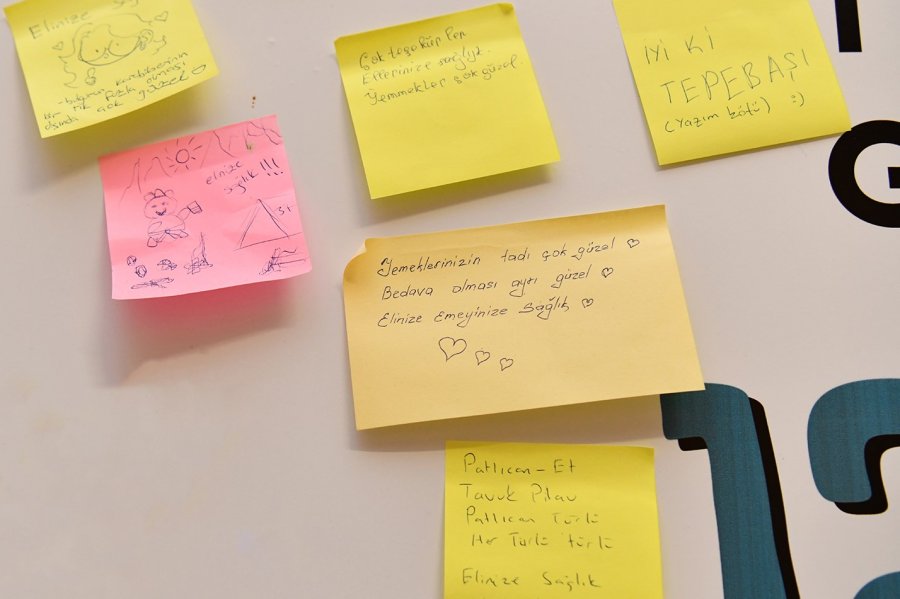 Elinize
olması
çok güzel
elinize
sağlık!!!
Çok teşekürler
Ellerinize sağlık.
Yemmekler çok güzel.
İYİ Kİ
TEPEBAŞI
(Yazım kötü) :)
G
Yemeklerinizin tadı çok güzel ♡
Bedava olması ayrı güzel ♡
Elinize Emeyinize Sağlık ♡
Patlıcan-Et
Tavuk Pilav
Patlıcan Türlü
Her Türlü türlü
Elinize Sağlık